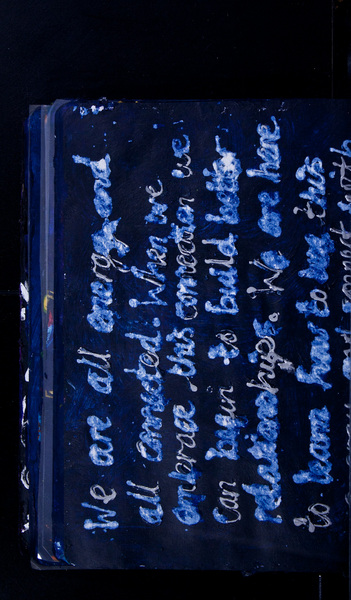 We are all energy and
all connected. When we
embrace this connection we
can begin to build better
relationships. We are here
to learn how to use this
energy and connect with